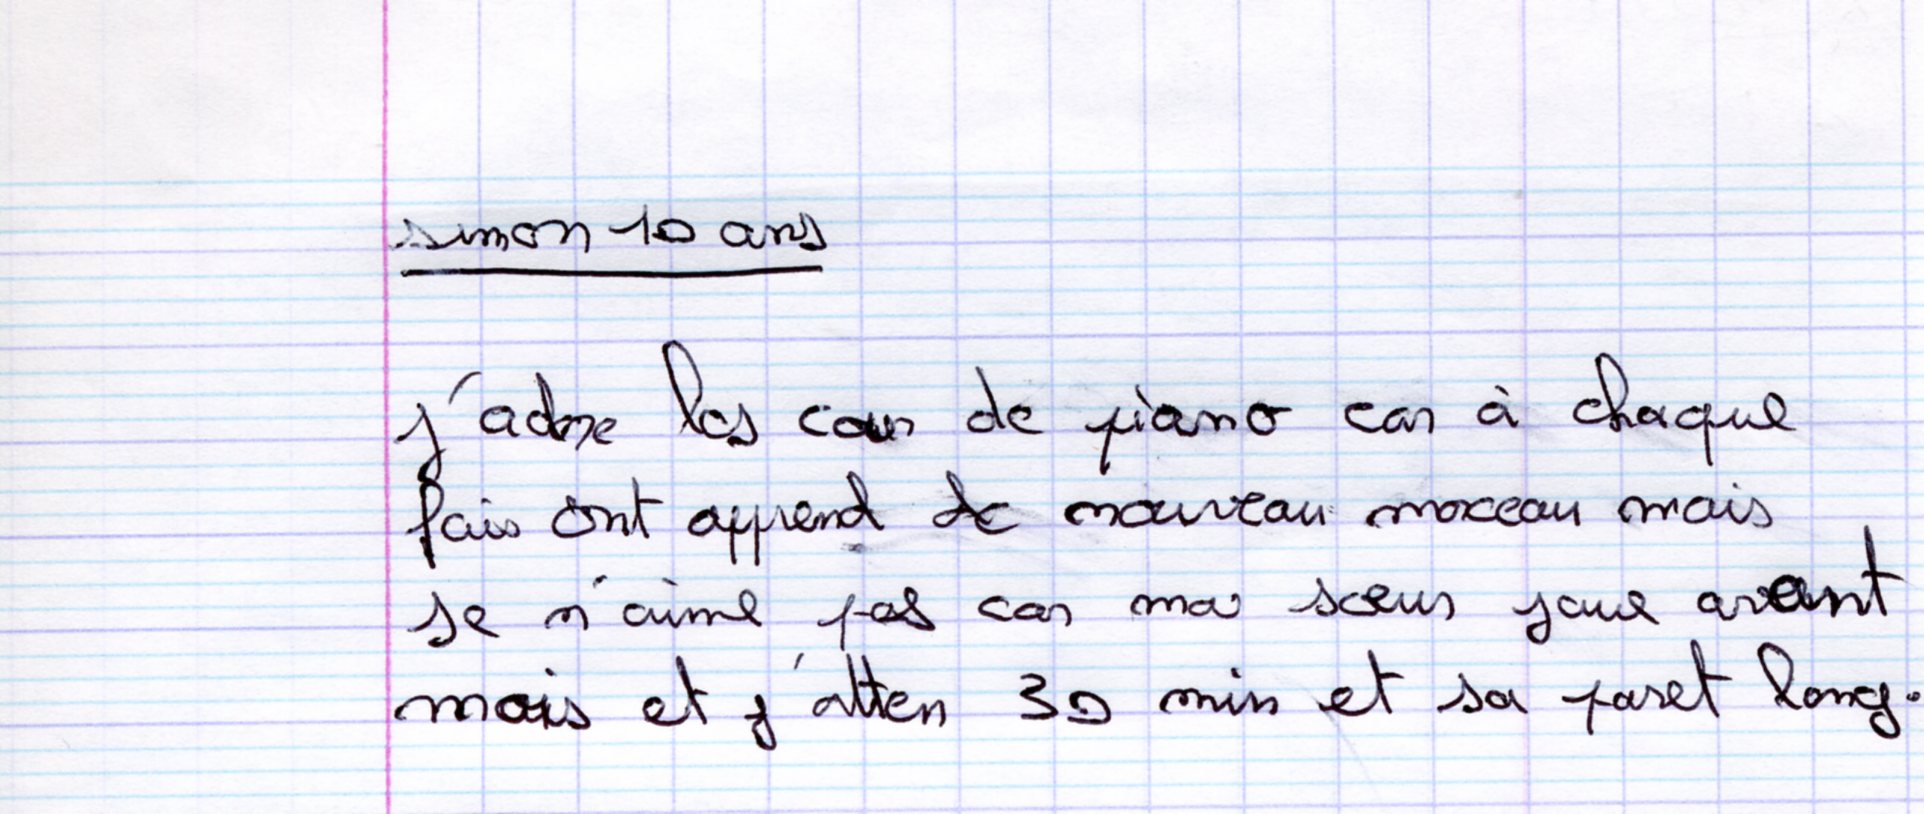 simon 10 ans
j'adore les cour de piano car à chaque
fais ont apprend de nouveau morceau mais
je n'aime pas car ma sœur joue avant
mois et j'atten 30 min et sa paret long.